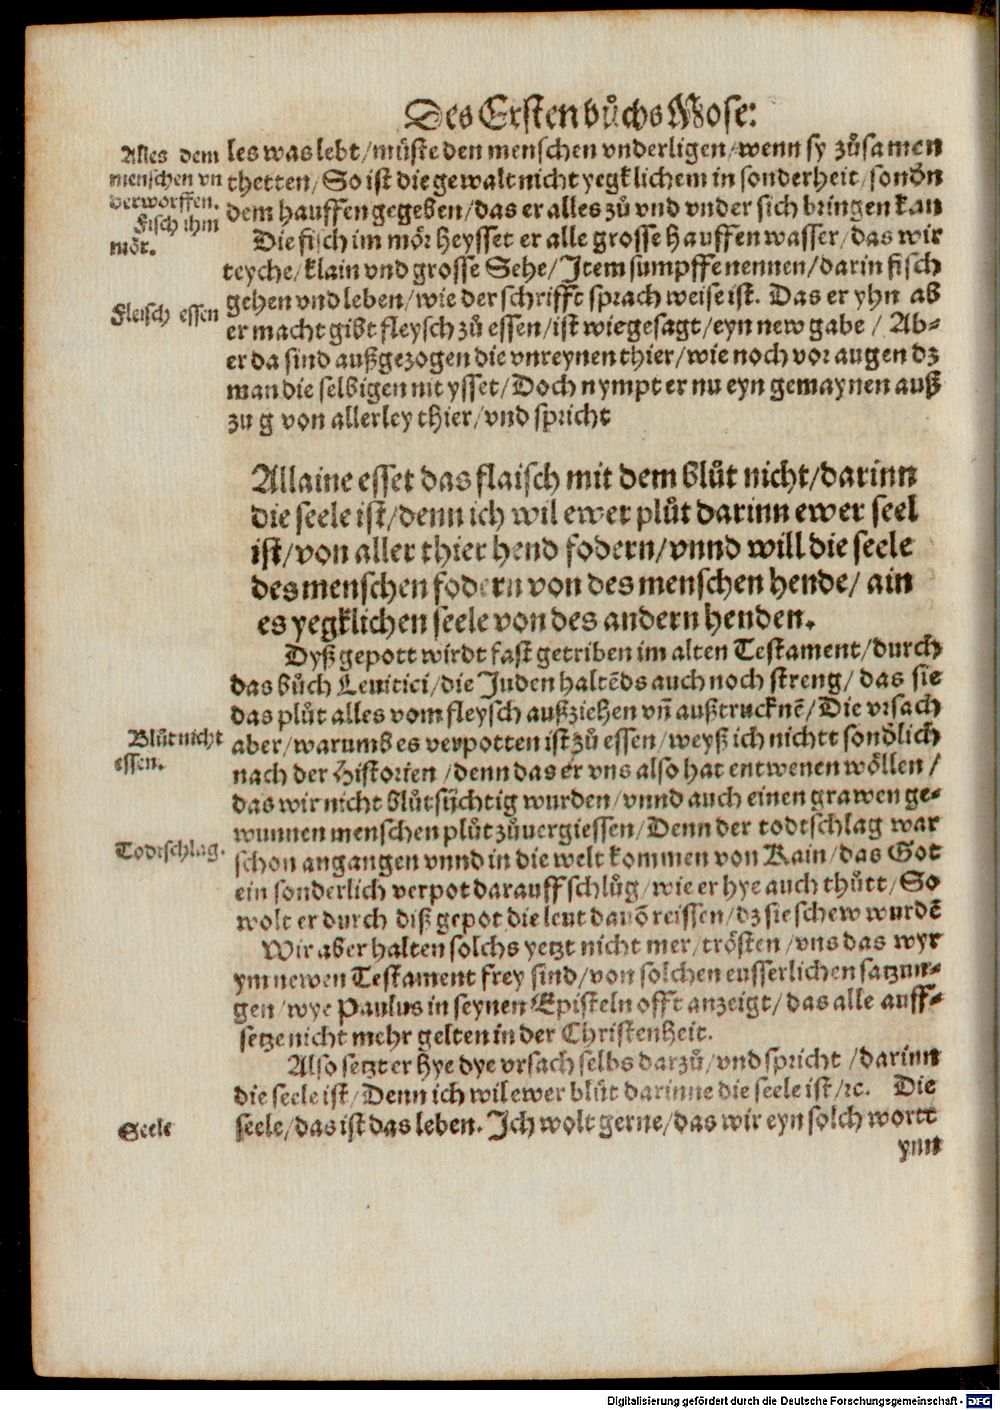 Des Ersten bůchs Mose:
Alles dem
menschen vn
derworffen.
Fisch ihm
mör.
les was lebt/müste den menschen vnderligen/wenn sy zůsamen
thetten/So ist die gewalt nicht yegklichem in sonderheit/sonďn
dem hauffen gegeben/das er alles zů vnd vnder sich bringen kan
Die fisch im mör heysset er alle grosse hauffen wasser/das wir
teyche/klain vnd grosse Sehe/Item sumpffe nennen/darin fisch
Fleisch essen
gehen vnd leben/wie der schrifft sprach weise ist. Das er yhn ab
er macht gibt fleysch zů essen/ist wie gesagt/eyn new gabe/Ab-
er da sind außgezogen die vnreynen thier/wie noch vor augen dz
man die selbigen nit ysset/Doch nympt er nu eyn gemaynen auß
zu g von allerley thier/vnd spricht
Allaine esset das flaisch mit dem blůt nicht/darinn
die seele ist/denn ich wil ewer plůt darinn ewer seel
ist/von aller thier hend fodern/vnnd will die seele
des menschen fodern von des menschen hende/ain
es yegklichen seele von des andern henden.
Dyß gepott wirdt fast getriben im alten Testament/durch
das bůch Leuitici/die Juden haltēds auch noch streng/das sie
das plůt alles vom fleysch außziehen vn̄ außtrucknē/Die vrsach
Blůt nicht
essen.
aber/warumb es verpotten ist zů essen/weyß ich nichtt sonďlich
nach der Historien/denn das er vns also hat entwenen wöllen/
das wir nicht blůtsÿchtig wurden/vnnd auch einen grawen ge-
wunnen menschen plůt zůuergiessen/Denn der todtschlag war
Todtschlag.
schon angangen vnnd in die welt kommen von Kain/das Got
ein sonderlich verpot darauff schlůg/wie er hye auch thůtt/So
wolt er durch diß gepot die leut dauō reissen/dz sie schew wurdē
Wir aber halten solchs yetzt nicht mer/trösten/vns das wyr
ym newen Testament frey sind/von solchen eusserlichen satzun-
gen/wye Paulus in seynen Episteln offt anzeigt/das alle auff-
setze nicht mehr gelten in der Christenheit.
Also setzt er hye dye vrsach selbs darzů/vnd spricht/darinn
die seele ist/Denn ich wil ewer blůt darinne die seele ist/ꝛc. Die
Seele
seele/das ist das leben. Ich wolt gerne/das wir eyn solch wortt
ynn
Digitalisierung gefördert durch die Deutsche Forschungsgemeinschaft - DFG